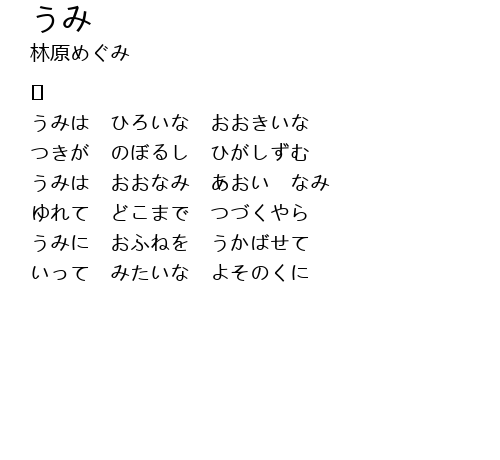 うみ
林原めぐみ
うみは　ひろいな　おおきいな
つきが　のぼるし　ひがしずむ
うみは　おおなみ　あおい　なみ
ゆれて　どこまで　つづくやら
うみに　おふねを　うかばせて
いって　みたいな　よそのくに